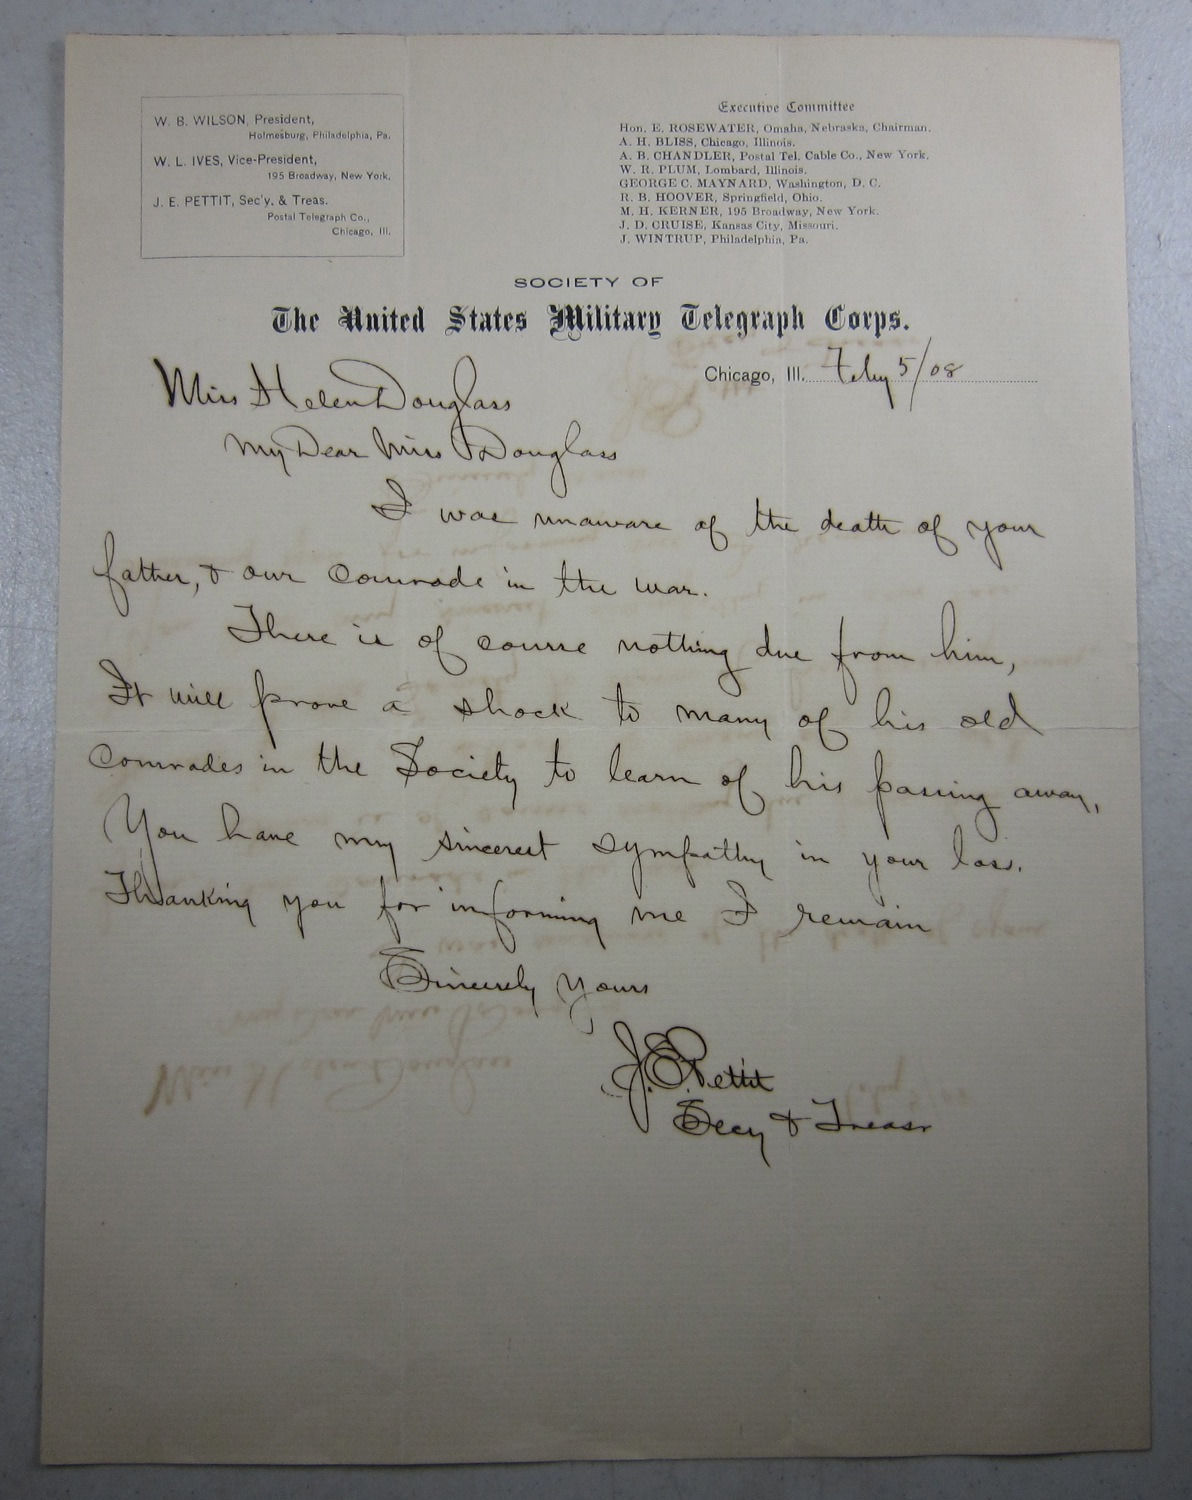 W. B. WILSON, President,
Holmesburg, Philadelphia, Pa.
W. L. IVES, Vice-President,
195 Broadway, New York.
J. E. PETTIT, Sec'y. & Treas.
Postal Telegraph Co.,
Chicago, Ill.
Executive Committee
Hon. E. ROSEWATER, Omaha, Nebraska, Chairman.
A. H. BLISS, Chicago, Illinois.
A. B. CHANDLER, Postal Tel. Cable Co., New York.
W. R. PLUM, Lombard, Illinois.
GEORGE C. MAYNARD, Washington, D. C.
R. B. HOOVER, Springfield, Ohio.
M. H. KERNER, 195 Broadway, New York.
J. D. CRUISE, Kansas City, Missouri.
J. WINTRUP, Philadelphia, Pa.
SOCIETY OF
The United States Military Telegraph Corps.
Chicago, Ill. Feby 5/08
Miss Helen Douglass
My Dear Miss Douglass
I was unaware of the death of your
father, & our Comrade in the war.
There is of course nothing due from him,
It will prove a shock to many of his old
Comrades in the Society to learn of his passing away,
You have my sincerest sympathy in your loss.
Thanking you for informing me I remain
Sincerely Yours
J. E. Pettit
Secy & Treasr